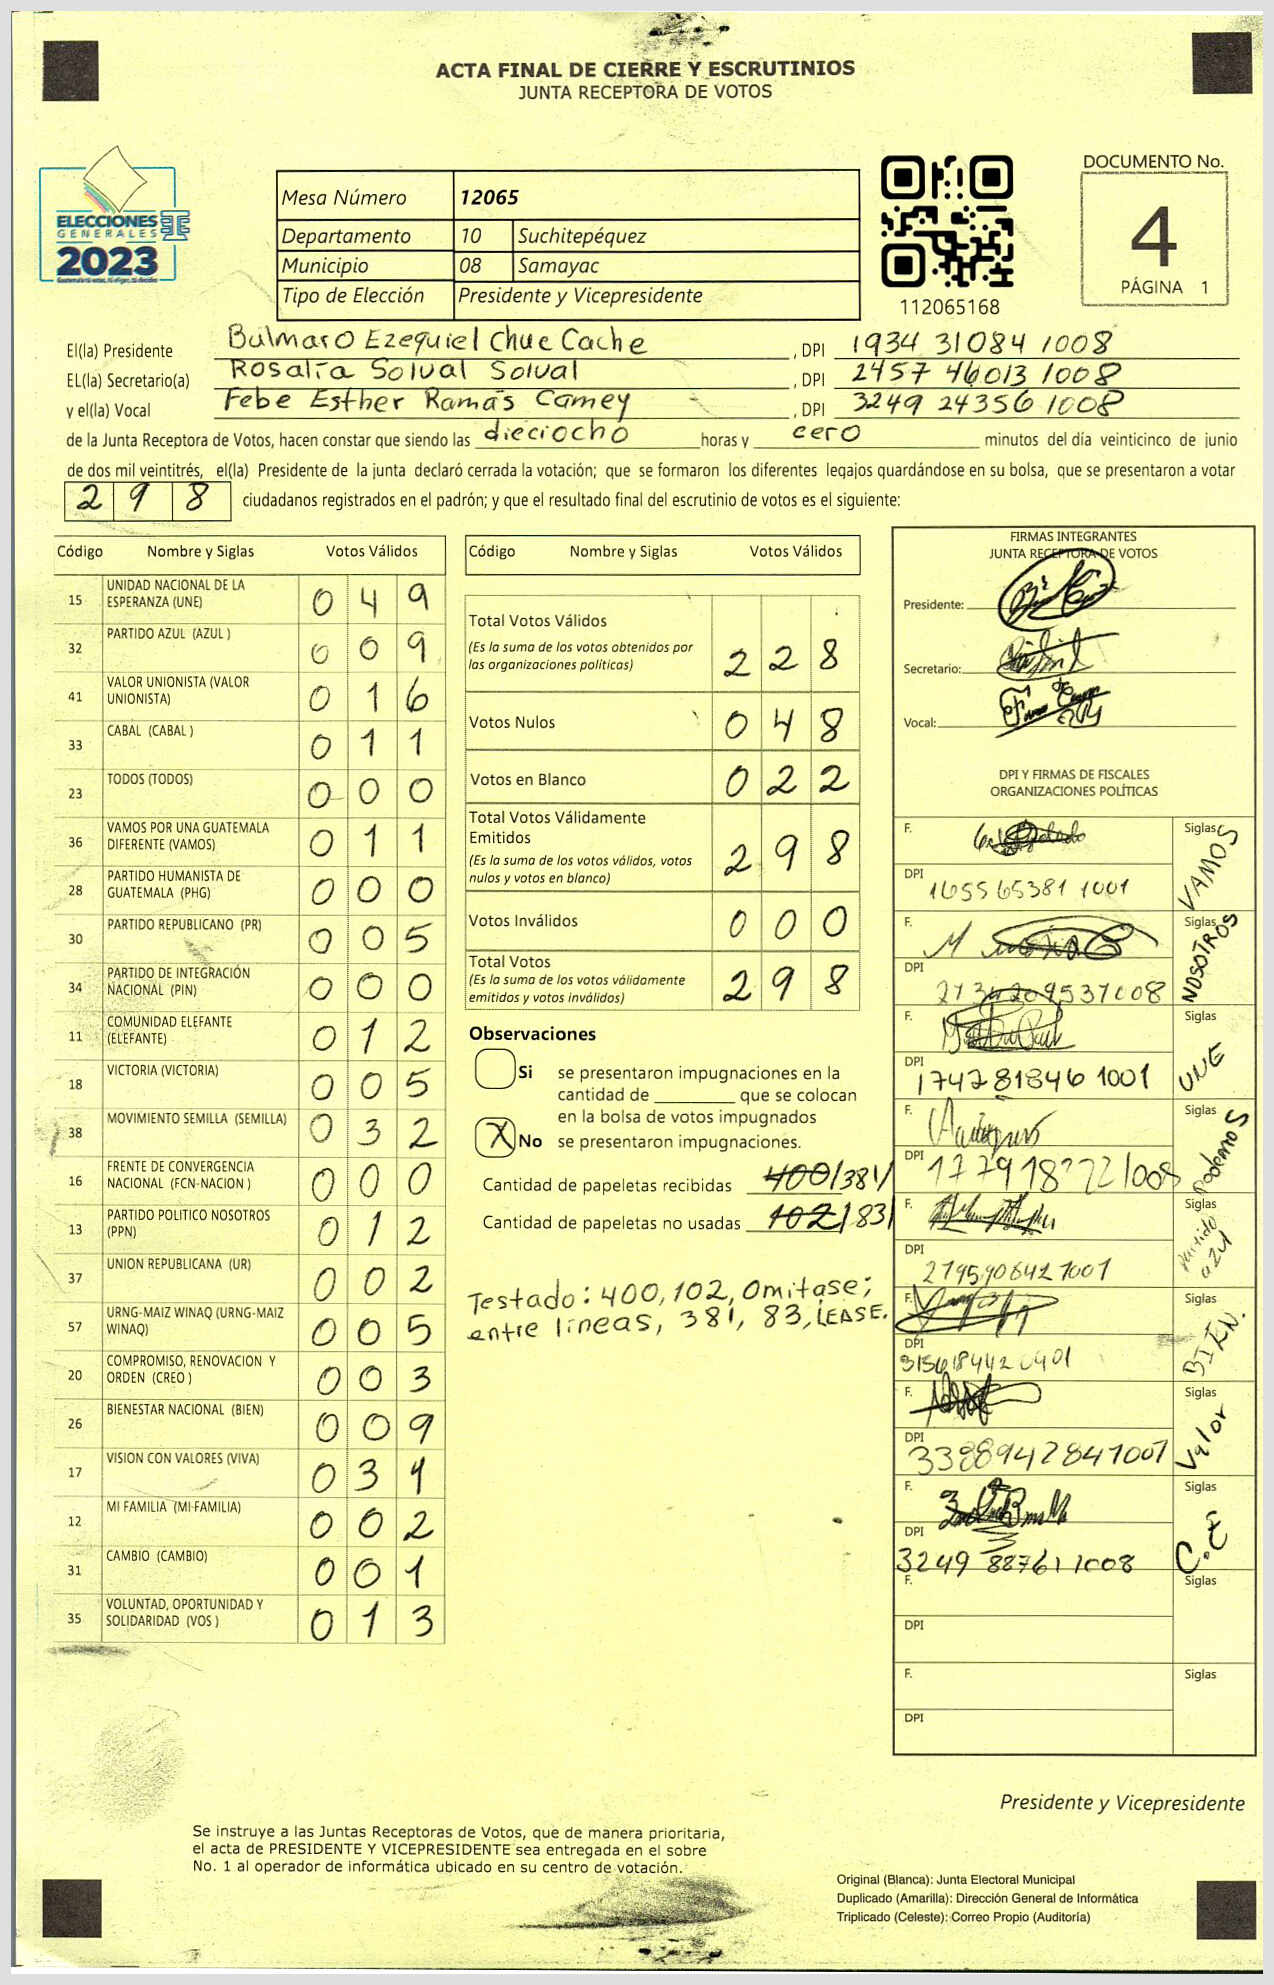 ACTA FINAL DE CIERRE Y ESCRUTINIOS
JUNTA RECEPTORA DE VOTOS
ELECCIONES
GENERALES
2023
Mesa Número 12065
Departamento 10 Suchitepéquez
Municipio 08 Samayac
Tipo de Elección Presidente y Vicepresidente
112065168
DOCUMENTO No.
4
PÁGINA 1
El(la) Presidente Bulmaro Ezequiel Chuc Cache , DPI 1934 31084 1008
EL(la) Secretario(a) Rosalía Solval Solval , DPI 2457 46013 1008
y el(la) Vocal Febe Esther Ramás Camey , DPI 3249 24356 1008
de la Junta Receptora de Votos, hacen constar que siendo las dieciocho horas y cero minutos del día veinticinco de junio
de dos mil veintitrés, el(la) Presidente de la junta declaró cerrada la votación; que se formaron los diferentes legajos quardándose en su bolsa, que se presentaron a votar
298 ciudadanos registrados en el padrón; y que el resultado final del escrutinio de votos es el siguiente:
Código Nombre y Siglas Votos Válidos
15 UNIDAD NACIONAL DE LA ESPERANZA (UNE) 049
32 PARTIDO AZUL (AZUL ) 009
41 VALOR UNIONISTA (VALOR UNIONISTA) 016
33 CABAL (CABAL ) 011
23 TODOS (TODOS) 000
36 VAMOS POR UNA GUATEMALA DIFERENTE (VAMOS) 011
28 PARTIDO HUMANISTA DE GUATEMALA (PHG) 000
30 PARTIDO REPUBLICANO (PR) 005
34 PARTIDO DE INTEGRACIÓN NACIONAL (PIN) 000
11 COMUNIDAD ELEFANTE (ELEFANTE) 012
18 VICTORIA (VICTORIA) 005
38 MOVIMIENTO SEMILLA (SEMILLA) 032
16 FRENTE DE CONVERGENCIA NACIONAL (FCN-NACION ) 000
13 PARTIDO POLITICO NOSOTROS (PPN) 012
37 UNION REPUBLICANA (UR) 002
57 URNG-MAIZ WINAQ (URNG-MAIZ WINAQ) 005
20 COMPROMISO, RENOVACION Y ORDEN (CREO ) 003
26 BIENESTAR NACIONAL (BIEN) 009
17 VISION CON VALORES (VIVA) 031
12 MI FAMILIA (MI-FAMILIA) 002
31 CAMBIO (CAMBIO) 001
35 VOLUNTAD, OPORTUNIDAD Y SOLIDARIDAD (VOS ) 013
Código Nombre y Siglas Votos Válidos
Total Votos Válidos 228
(Es la suma de los votos obtenidos por
las organizaciones políticas)
Votos Nulos 048
Votos en Blanco 022
Total Votos Válidamente
Emitidos 298
(Es la suma de los votos válidos, votos
nulos y votos en blanco)
Votos Inválidos 000
Total Votos 298
(Es la suma de los votos válidamente
emitidos y votos inválidos)
Observaciones
Si se presentaron impugnaciones en la
cantidad de _________ que se colocan
en la bolsa de votos impugnados
X No se presentaron impugnaciones.
Cantidad de papeletas recibidas 400/381/
Cantidad de papeletas no usadas 102/83/
Testado: 400, 102, Omitase;
entre lineas, 381, 83, LEASE.
FIRMAS INTEGRANTES
JUNTA RECEPTORA DE VOTOS
Presidente:
Secretario:
Vocal:
DPI Y FIRMAS DE FISCALES
ORGANIZACIONES POLÍTICAS
F. Siglas VAMOS
DPI 1655 65381 1001
F. Siglas NOSOTROS
DPI
F. Siglas UNE
DPI 1747 81846 1001
F. Siglas Podemos
DPI
F. Siglas Partido azul
DPI 2795906421001
F. Siglas BIEN.
DPI
F. Siglas Valor
DPI 3388942841001
F. Siglas C.E
DPI 3249 88761 1008
F. Siglas
DPI
F. Siglas
DPI
Presidente y Vicepresidente
Se instruye a las Juntas Receptoras de Votos, que de manera prioritaria,
el acta de PRESIDENTE Y VICEPRESIDENTE sea entregada en el sobre
No. 1 al operador de informática ubicado en su centro de votación.
Original (Blanca): Junta Electoral Municipal
Duplicado (Amarilla): Dirección General de Informática
Triplicado (Celeste): Correo Propio (Auditoría)